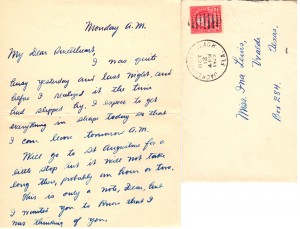 Monday A.M.
My Dear
I was quite
busy yesterday and last night, and
before I realized it the time
had slipped by. I expect to get
everything in shape today so that
I can leave tomorrow A.M.
Will go to St Augustine for a
little stop but it will not take
long there, probably an hour or two.
This is only a note, Dear, but
I wanted you to know that I
was thinking of you.
FLA
Miss Ina Lewis,
Uvalde
Texas.
Box 284,